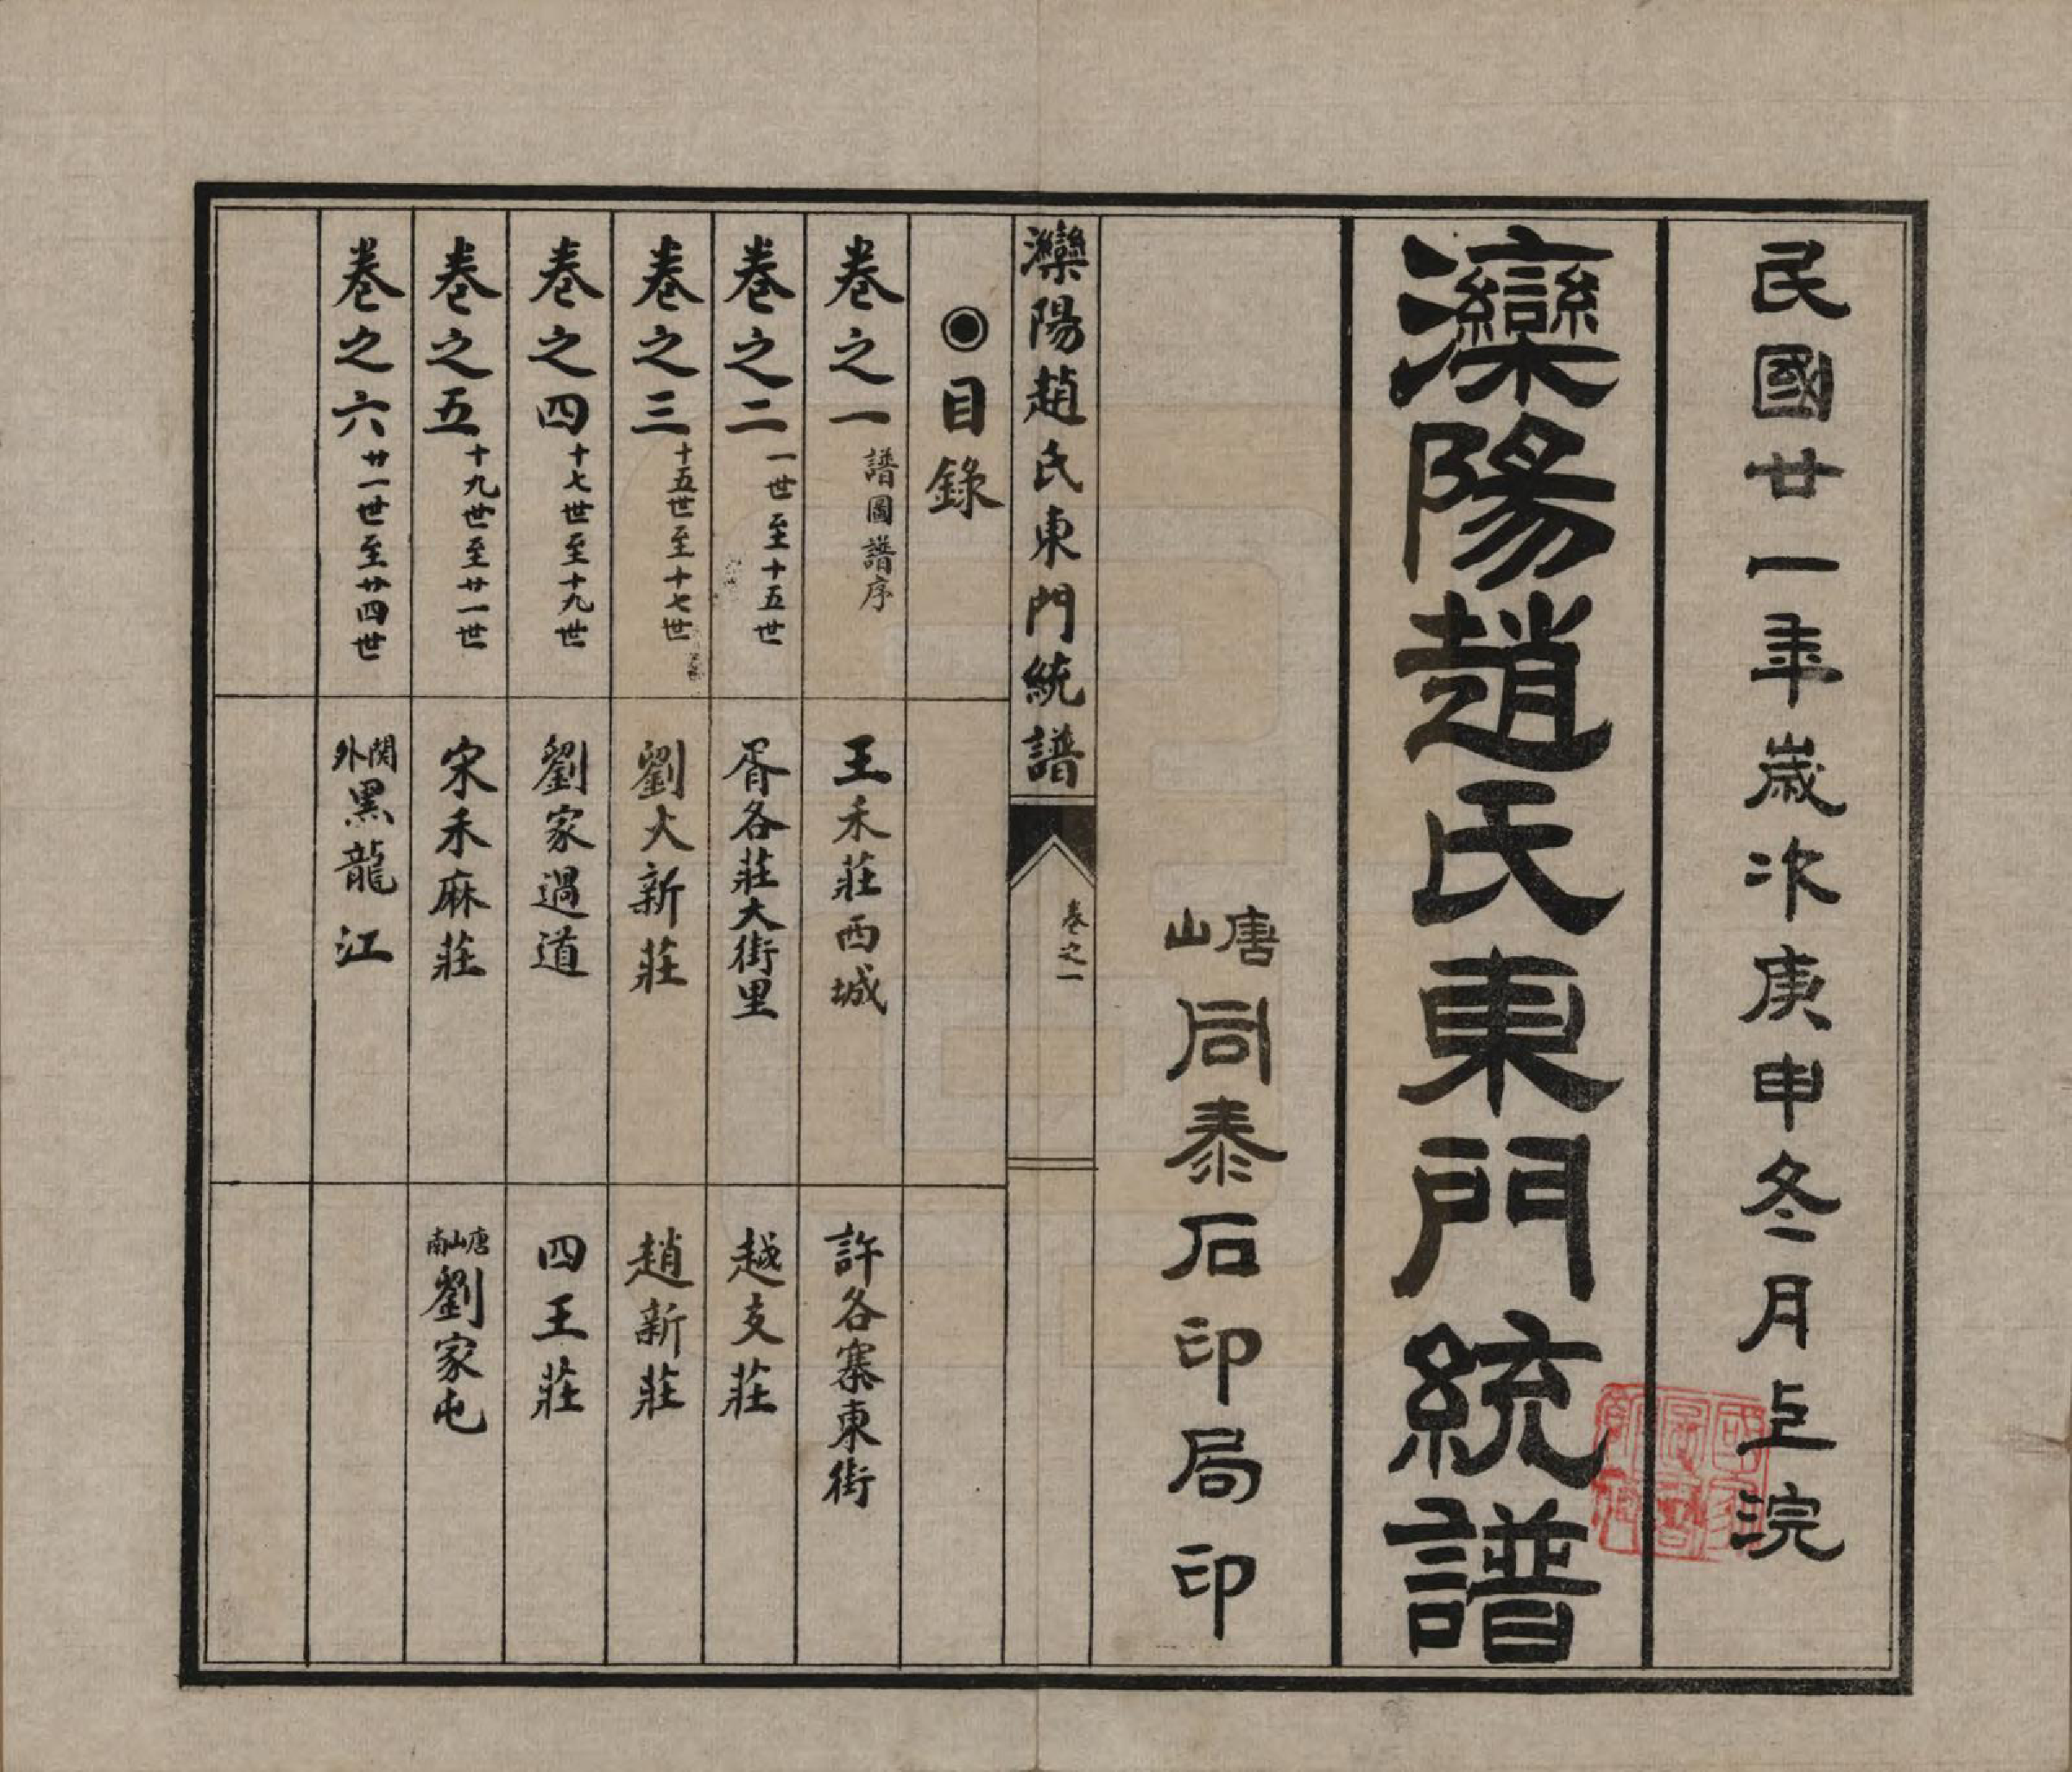 民國廿一年歲次庚申冬月上浣
灤陽趙氏東門統譜
唐山同泰石印局印
灤陽趙氏東門統譜 卷之一
◉目錄
卷之一 譜圖譜序 王禾莊西城 許各寨東街
卷之二 一世至十五世 胥各莊大街里 越支莊
卷之三 十五世至十七世 劉大新莊 趙新莊
卷之四 十七世至十九世 劉家過道 四王莊
卷之五 十九世至廿一世 宋禾麻莊 唐山南劉家屯
卷之六 廿一世至廿四世 関外黑龍江